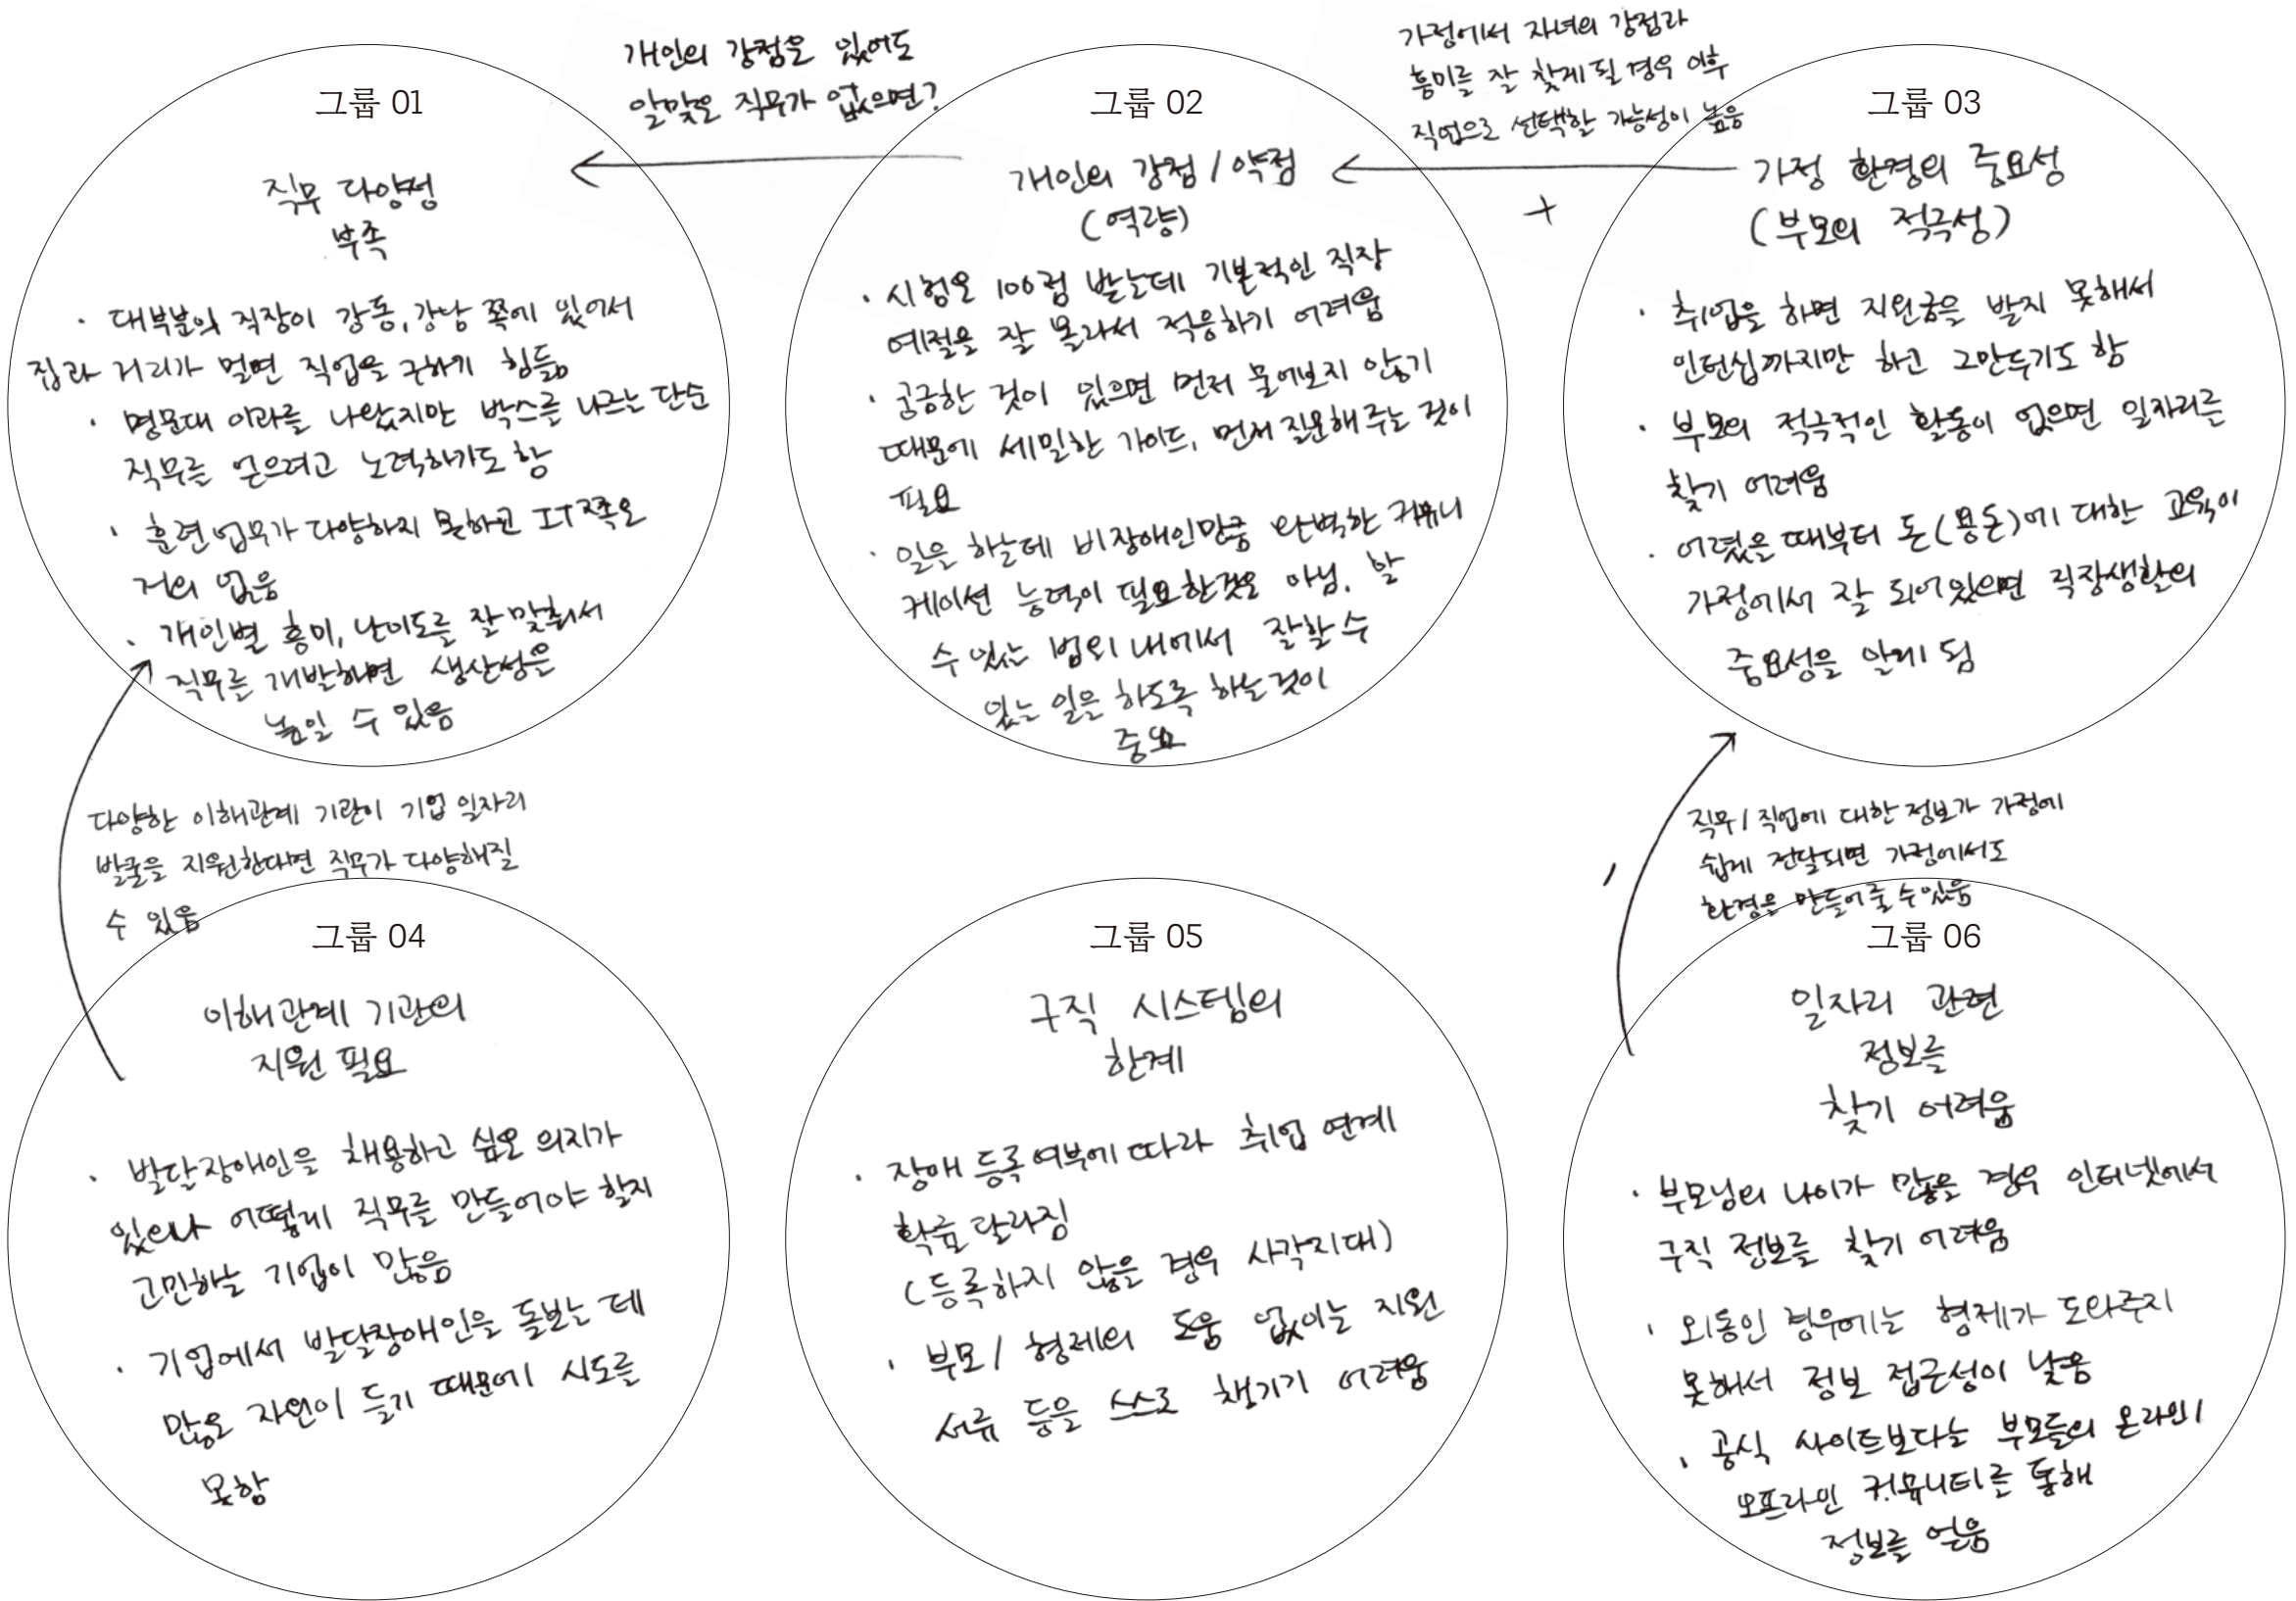 개인의 강점은 있어도
알맞은 직무가 없으면?
가정에서 자녀의 강점과
흥미를 잘 찾게 될 경우 이후
직업으로 선택할 가능성이 높음
+
그룹 01
직무 다양성
부족
· 대부분의 직장이 강동, 강남 쪽에 있어서
집과 거리가 멀면 직업을 구하기 힘듦
· 명문대 이과를 나왔지만 박스를 나르는 단순
직무를 얻으려고 노력하기도 함
· 훈련 업무가 다양하지 못하고 IT쪽은
거의 없음
· 개인별 흥미, 난이도를 잘 맞춰서
직무를 개발하면 생산성을
높일 수 있음
그룹 02
개인의 강점 / 약점
(역량)
· 시험은 100점 받는데 기본적인 직장
예절을 잘 몰라서 적응하기 어려움
· 궁금한 것이 있으면 먼저 물어보지 않기
때문에 세밀한 가이드, 먼저 질문해주는 것이
필요
· 일을 하는데 비장애인만큼 완벽한 커뮤니
케이션 능력이 필요한것은 아님. 할
수 있는 범위 내에서 잘할 수
있는 일을 하도록 하는것이
중요
그룹 03
가정 환경의 중요성
(부모의 적극성)
· 취업을 하면 지원금을 받지 못해서
인턴십까지만 하고 그만두기도 함
· 부모의 적극적인 활동이 없으면 일자리를
찾기 어려움
· 어렸을 때부터 돈(용돈)에 대한 교육이
가정에서 잘 되어있으면 직장생활의
중요성을 알게 됨
다양한 이해관계 기관이 기업 일자리
발굴을 지원한다면 직무가 다양해질
수 있음
직무 / 직업에 대한 정보가 가정에
쉽게 전달되면 가정에서도
환경을 만들어줄 수 있음
그룹 04
이해관계 기관의
지원 필요
· 발달장애인을 채용하고 싶은 의지가
있으나 어떻게 직무를 만들어야 할지
고민하는 기업이 많음
· 기업에서 발달장애인을 돌보는 데
많은 자원이 들기 때문에 시도를
못함
그룹 05
구직 시스템의
한계
· 장애 등록여부에 따라 취업 연계
확률 달라짐
(등록하지 않을 경우 사각지대)
· 부모 / 형제의 도움 없이는 지원
서류 등을 스스로 챙기기 어려움
그룹 06
일자리 관련
정보를
찾기 어려움
· 부모님의 나이가 많을 경우 인터넷에서
구직 정보를 찾기 어려움
· 외동인 경우에는 형제가 도와주지
못해서 정보 접근성이 낮음
· 공식 사이트보다는 부모들의 온라인/
오프라인 커뮤니티를 통해
정보를 얻음